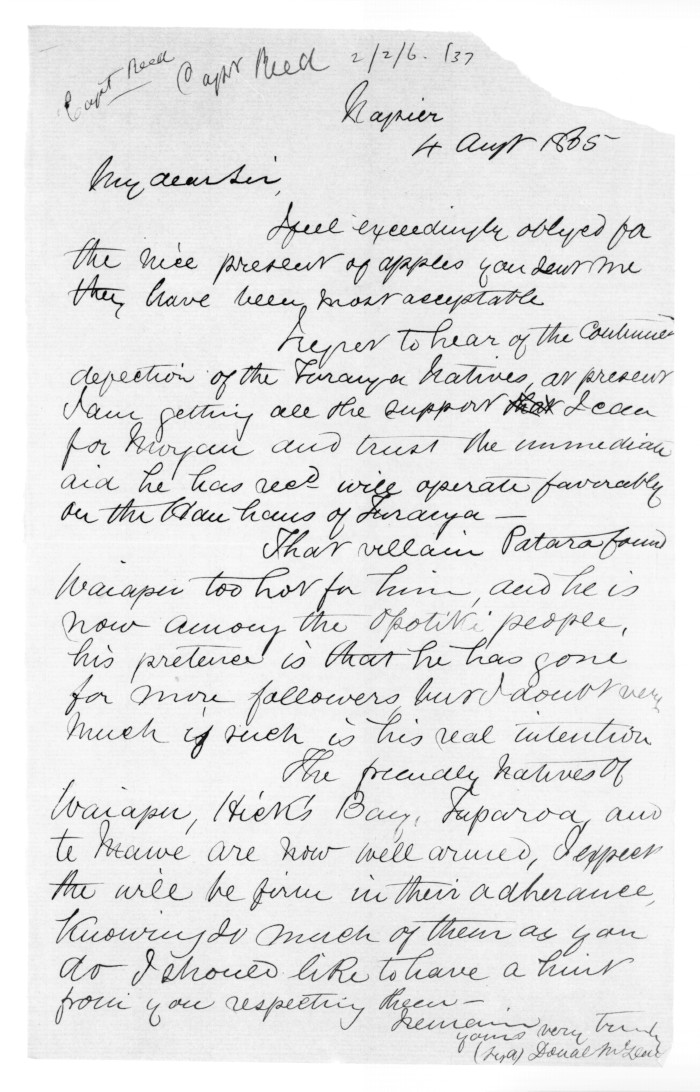 Capt Reed Capt Reed 2/2/6. 137
Napier
4 Augt 1865
My dear Sir,
I feel exceedingly oblyed for
the nice present of apples you sent me
they have been most acceptable
I regret to hear of the Continued
defection of the Turanga Natives, at present
I am getting all the support that I can
for Morgan and trust the immediate
aid he has recd will operate favorably
on the Hau haus of Turanga —
That villain Patara found
Waiapu too hot for him, and he is
now among the Opotiki people,
his pretence is that he has gone
for more followers, but I doubt very
much if such is his real intention
The friendly Natives of
Waiapu, Hick's Bay, Tuparoa, and
te Mawe are now well armed, I expect
the will be firm in their adherance,
Knowing so much of them as you
do I should like to have a hint
from you respecting them —
I remain
yours very truly
(sgd) Donal McLean